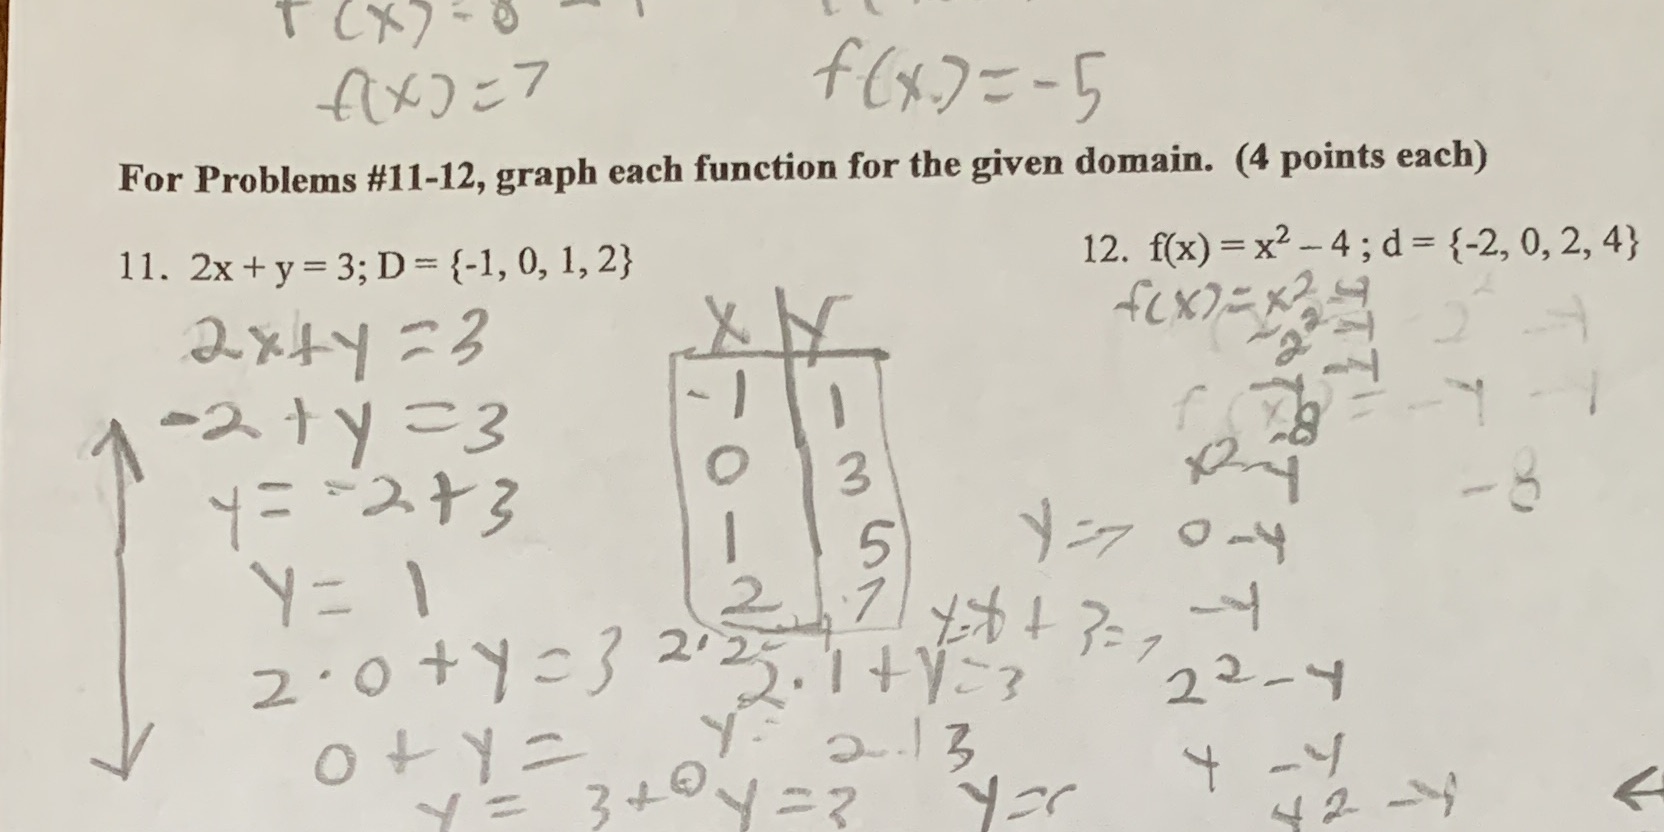 f(x) = 8 - 1
f(x) = 7
f(x) = -5
For Problems #11-12, graph each function for the given domain. (4 points each)
11. 2x + y = 3; D = {-1, 0, 1, 2}
2x+y = 3
-2 + y = 3
y = -2+3
y = 1
2·0 + y = 3
0 + y =
y = 3+0
x y
-1 1
0 3
1 5
2 7
2·2=
2·1+y=3
y=
2·1 3
y=3
12. f(x) = x² – 4 ; d = {-2, 0, 2, 4}
f(x) = x²-4
-2²-4
-8
x²-4
-8
y=
0-4
-4
2²-4
4 -4
4² -4